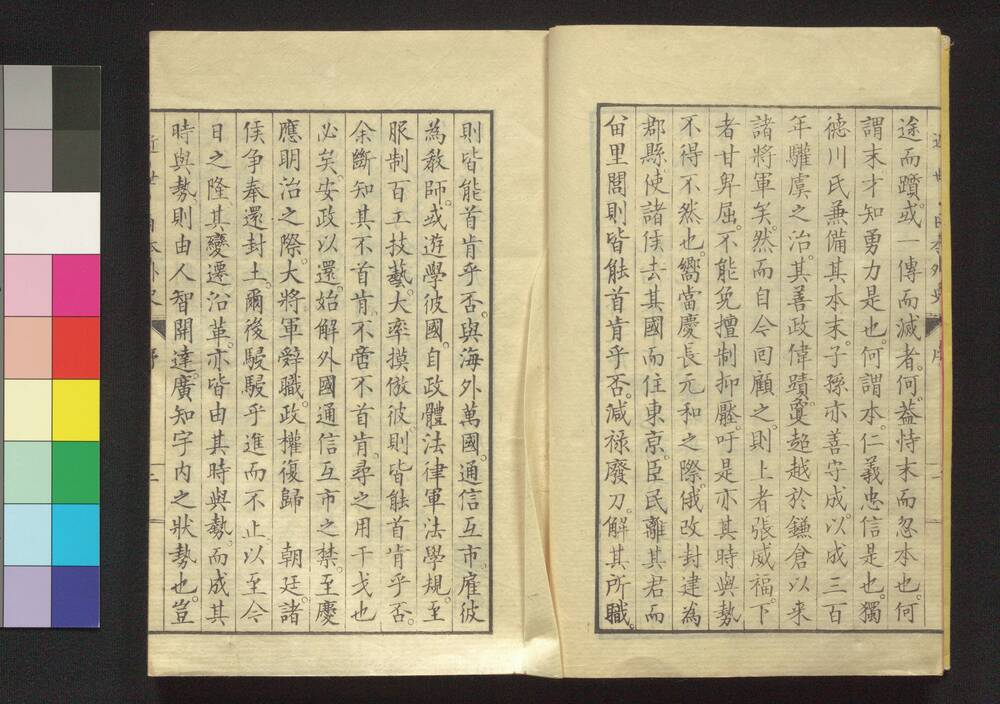 途而躓。或一傳而減者。何。葢恃末而忽本也。何
謂末才知勇力是也。何謂本。仁義忠信是也。獨
徳川氏兼備其本末。子孫亦善守成。以成三百
年驩虞之治。其善政偉蹟。夐超越於鎌倉以来
諸將軍矣。然而自今回顧之。則上者張威福。下
者甘卑屈。不能免擅制抑壓。吁是亦其時與勢
不得不然也。嚮當慶長元和之際。俄改封建為
郡縣。使諸侯去其國而住東京。臣民離其君而
留里閭。則皆能首肯乎否。減祿廢刀。解其所職。
則皆能首肯乎否。與海外萬國。通信互市。雇彼
為教師。或遊學彼國。自政體法律軍法學規。至
服制百工技藝。大率摸倣彼。則皆能首肯乎否。
余斷知其不首肯。不啻不首肯。尋之用干戈也
必矣。安政以還。始解外國通信互市之禁。至慶
應明治之際。大將軍辭職。政權復歸　朝廷。諸
侯争奉還封土。爾後駸駸乎進而不止。以至今
日之隆。其變遷沿革。亦皆由其時與勢。而成其
時與勢。則由人智開達。廣知宇内之狀勢也。豈
近世日本外史　序